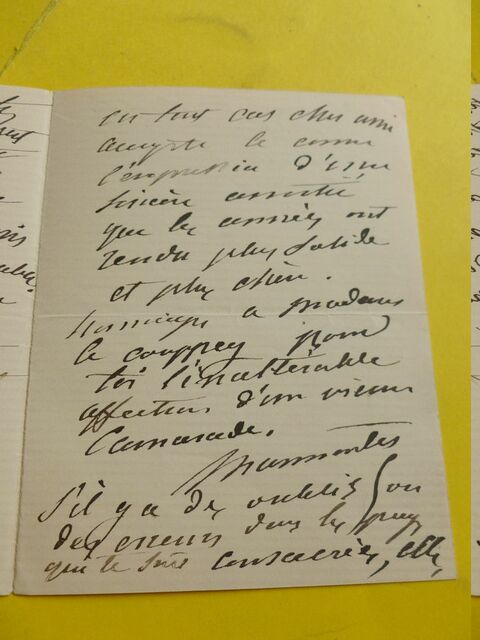 en tout cas cher ami
accepte le comme
l'expression d'une
sincère amitié
que les années ont
rendu plus solide
et plus chère.
Hommage a Madame
le couppey pour
toi l'inaltérable
affection d'un vieux
Camarade.
Marmontel
S'il y a des oublis ou
des erreurs dans les pages
que te sont consacrées, elles